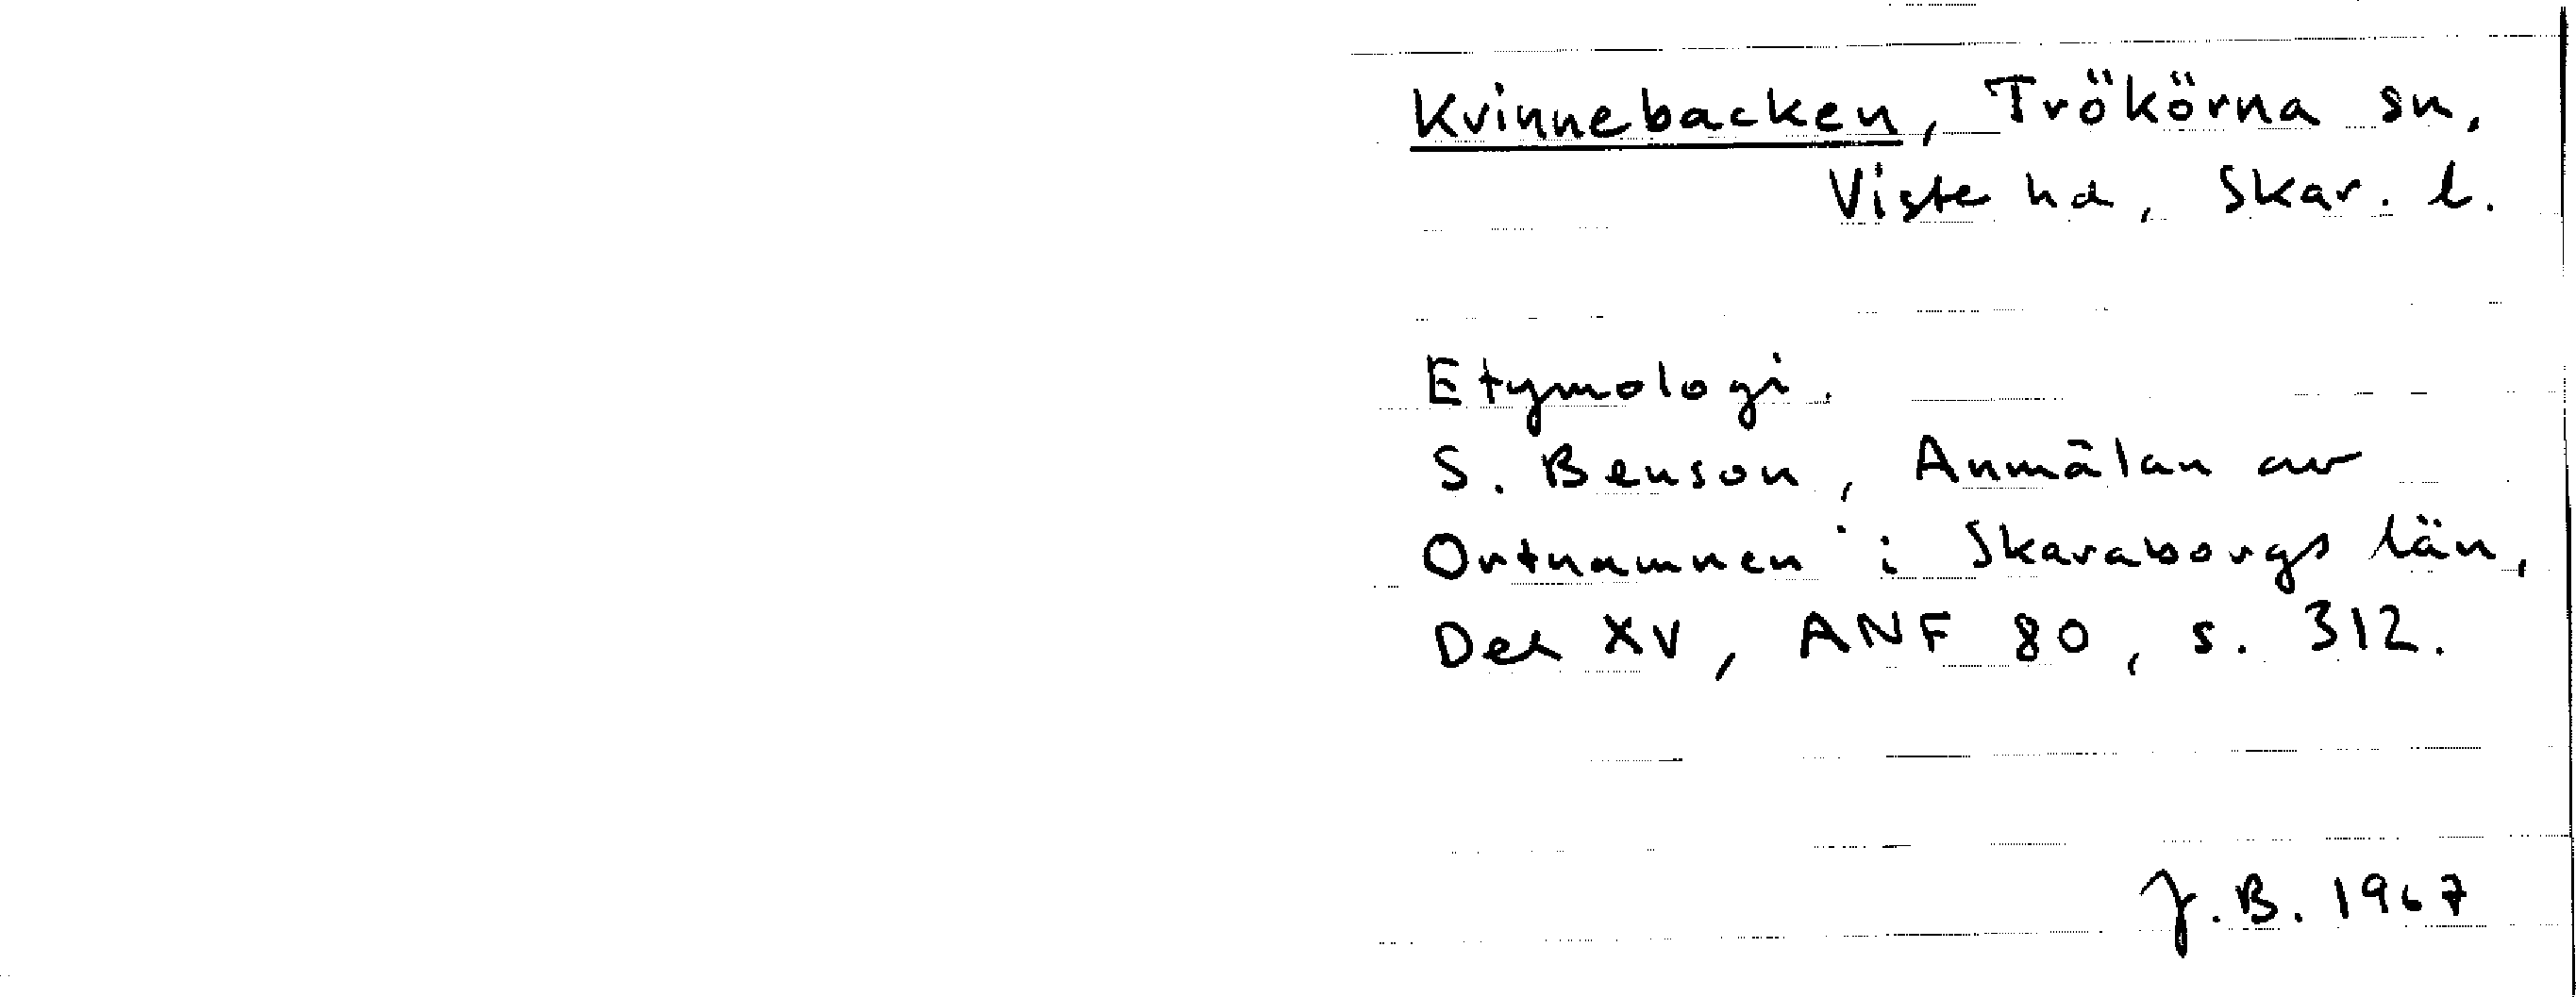 Kvinnebacken, Trökörna sn,
Viste hd, Skar. l.
Etymologi.
S. Benson, Anmälan av
Ortnamnen i Skaraborgs län,
Del XV, ANF 80, s. 312.
J.B. 1967